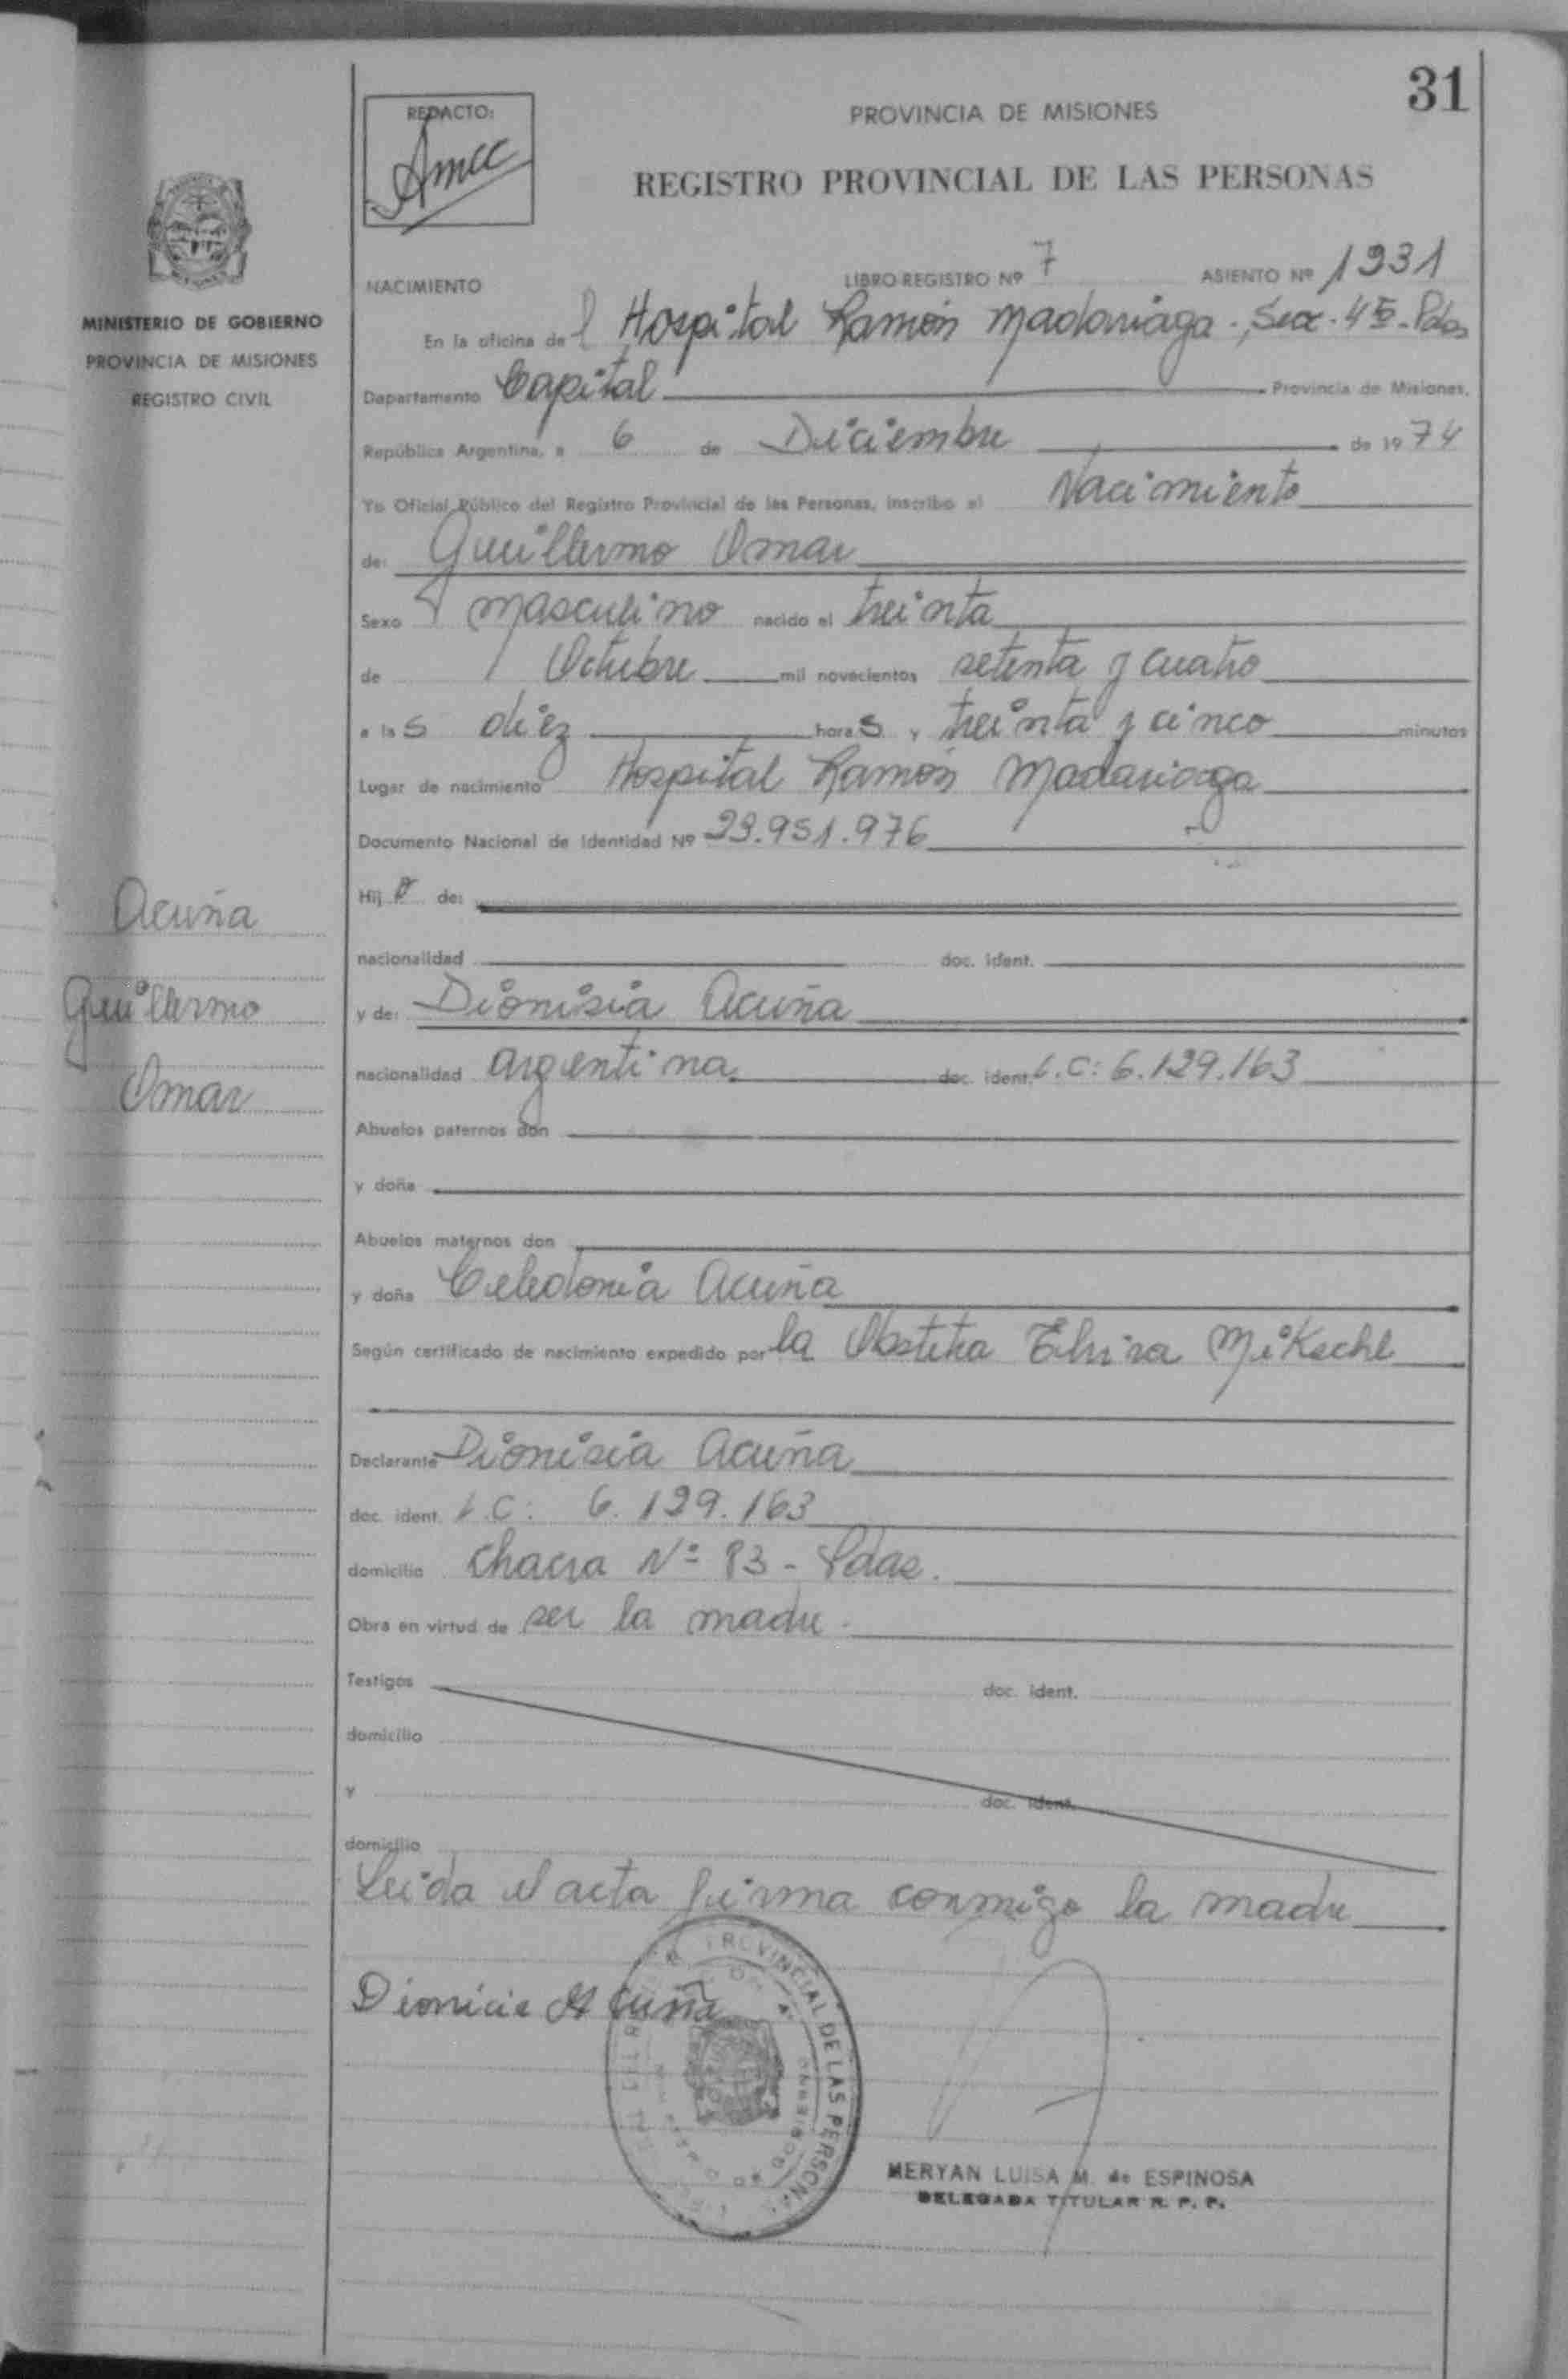 31
REDACTO:
PROVINCIA DE MISIONES
REGISTRO PROVINCIAL DE LAS PERSONAS
MINISTERIO DE GOBIERNO
PROVINCIA DE MISIONES
REGISTRO CIVIL
NACIMIENTO LIBRO REGISTRO Nº 7 ASIENTO Nº 1931
En la oficina del Hospital Ramón Madariaga. Secc. 4ta. Pdas
Departamento Capital Provincia de Misiones.
República Argentina, a 6 de Diciembre de 1974
Yo Oficial Público del Registro Provincial de las Personas, inscribo el Nacimiento
de: Guillermo Omar
Sexo masculino nacido el treinta
de Octubre mil novecientos setenta y cuatro
a las diez horas y treinta y cinco minutos
Lugar de nacimiento Hospital Ramón Madariaga
Documento Nacional de Identidad Nº 23.951.976
Hijo de:
nacionalidad doc. ident.
y de: Dionisia Acuña
nacionalidad argentina. doc. ident. L.C: 6.129.163
Abuelos paternos don
y doña
Abuelos maternos don
y doña Celedonia Acuña
Según certificado de nacimiento expedido por la Obstetra Elvira
Declarante Dionisia Acuña
doc. ident. L.C: 6.129.163
domicilio Chacra Nº 83 - Pdas.
Obra en virtud de ser la madre.
Testigos doc. ident.
domicilio
y doc. ident.
domicilio
Leida el acta firma conmigo la madre
Dionicia Acuña
PROVINCIAL DE LAS PERSONAS
MERYAN LUISA M. de ESPINOSA
DELEGADA TITULAR R. P. P.
Acuña
Guillermo
Omar